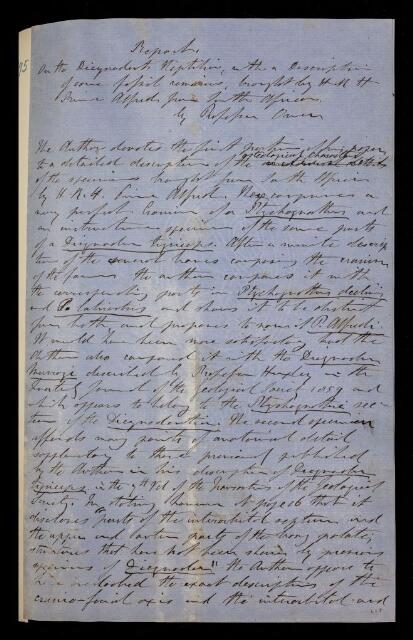 95
Report.
On the Dicynodont Reptilia, with a Description
of some fossil remains, brought by H.R.H
Prince Alfred from South Africa
by Professor Owen
The Author devotes the first portion of his paper
to a detailed description of the osteological characters
of the specimens brought from South Africa
by H.R.H. Prince Alfred. comprises a
very perfect cranium of a Ptychognathus and
an instructive specimen of the same parts
of a Dicynodon tigriceps. After a minute descrip
tion of the several bones composing the cranium
of the former the author compares it with
the corresponding parts in Ptychognathus declivis
and P. latirostris and shows it to be distinct
from both, and proposes to name it P. Alfredi.
It would have been more satisfactory had the
Author also compared it with the Dicynodon
Murrayi described by Professor Huxley in the
Quarterly Journal of the Geological Society 1859 and
which appears to belong to the Ptychognathic sec
tion of the Dicynodontia. The second specimen
affords many points of anatomical detail
supplementary to those previously published
by the Author in his description of Dicynodon
tigriceps in the 7th Vol of the Transactions of the Geological
Society. In stating however at page 26 that it
discloses "parts of the interorbital septum, and
the upper and certain parts of the bony palate,
structures that have not been shown by previous
specimens of Dicynodon" the Author appears to
have overlooked the exact description of the
cranio-facial axis and the interorbital and